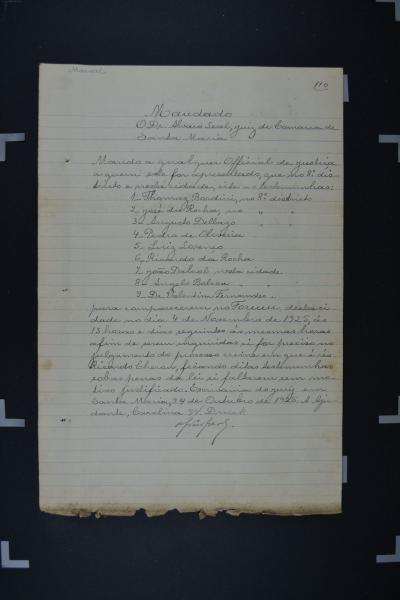 Manoel
110
Mandado
O Dr. Alvaro Leal, juiz de Comarca de
Santa Maria
Mando a qualquer Official de justiça
a quem este for apresentado, que no 8º dis-
tricto e nesta cidade, cite as testemunhas:
1 - Thomaz no 8º districto
2 - José da Rocha, no " "
3 - Augusto " "
4 - Pedro de Oliveira
5 - Luiz Lorenzo
6 - Ricardo da Rocha
7 - João nesta cidade
8 - Angelo " "
9 - Dr. Valentim Fernandes "
para comparecerem no Forum, desta ci-
dade no dia 4 de Novembro de 1925, ás
13 horas e dias seguintes ás mesmas horas
afim de serem inquiridas si for preciso no
julgamento do processo crime em que é réo
Ricardo ficando ditas testemunhas
sob as penas da lei si faltarem sem mo-
tivo justificado. do juiz, em
Santa Maria, 24 de Outubro de 1925. A Aju-
dante, Carolina W. Druck